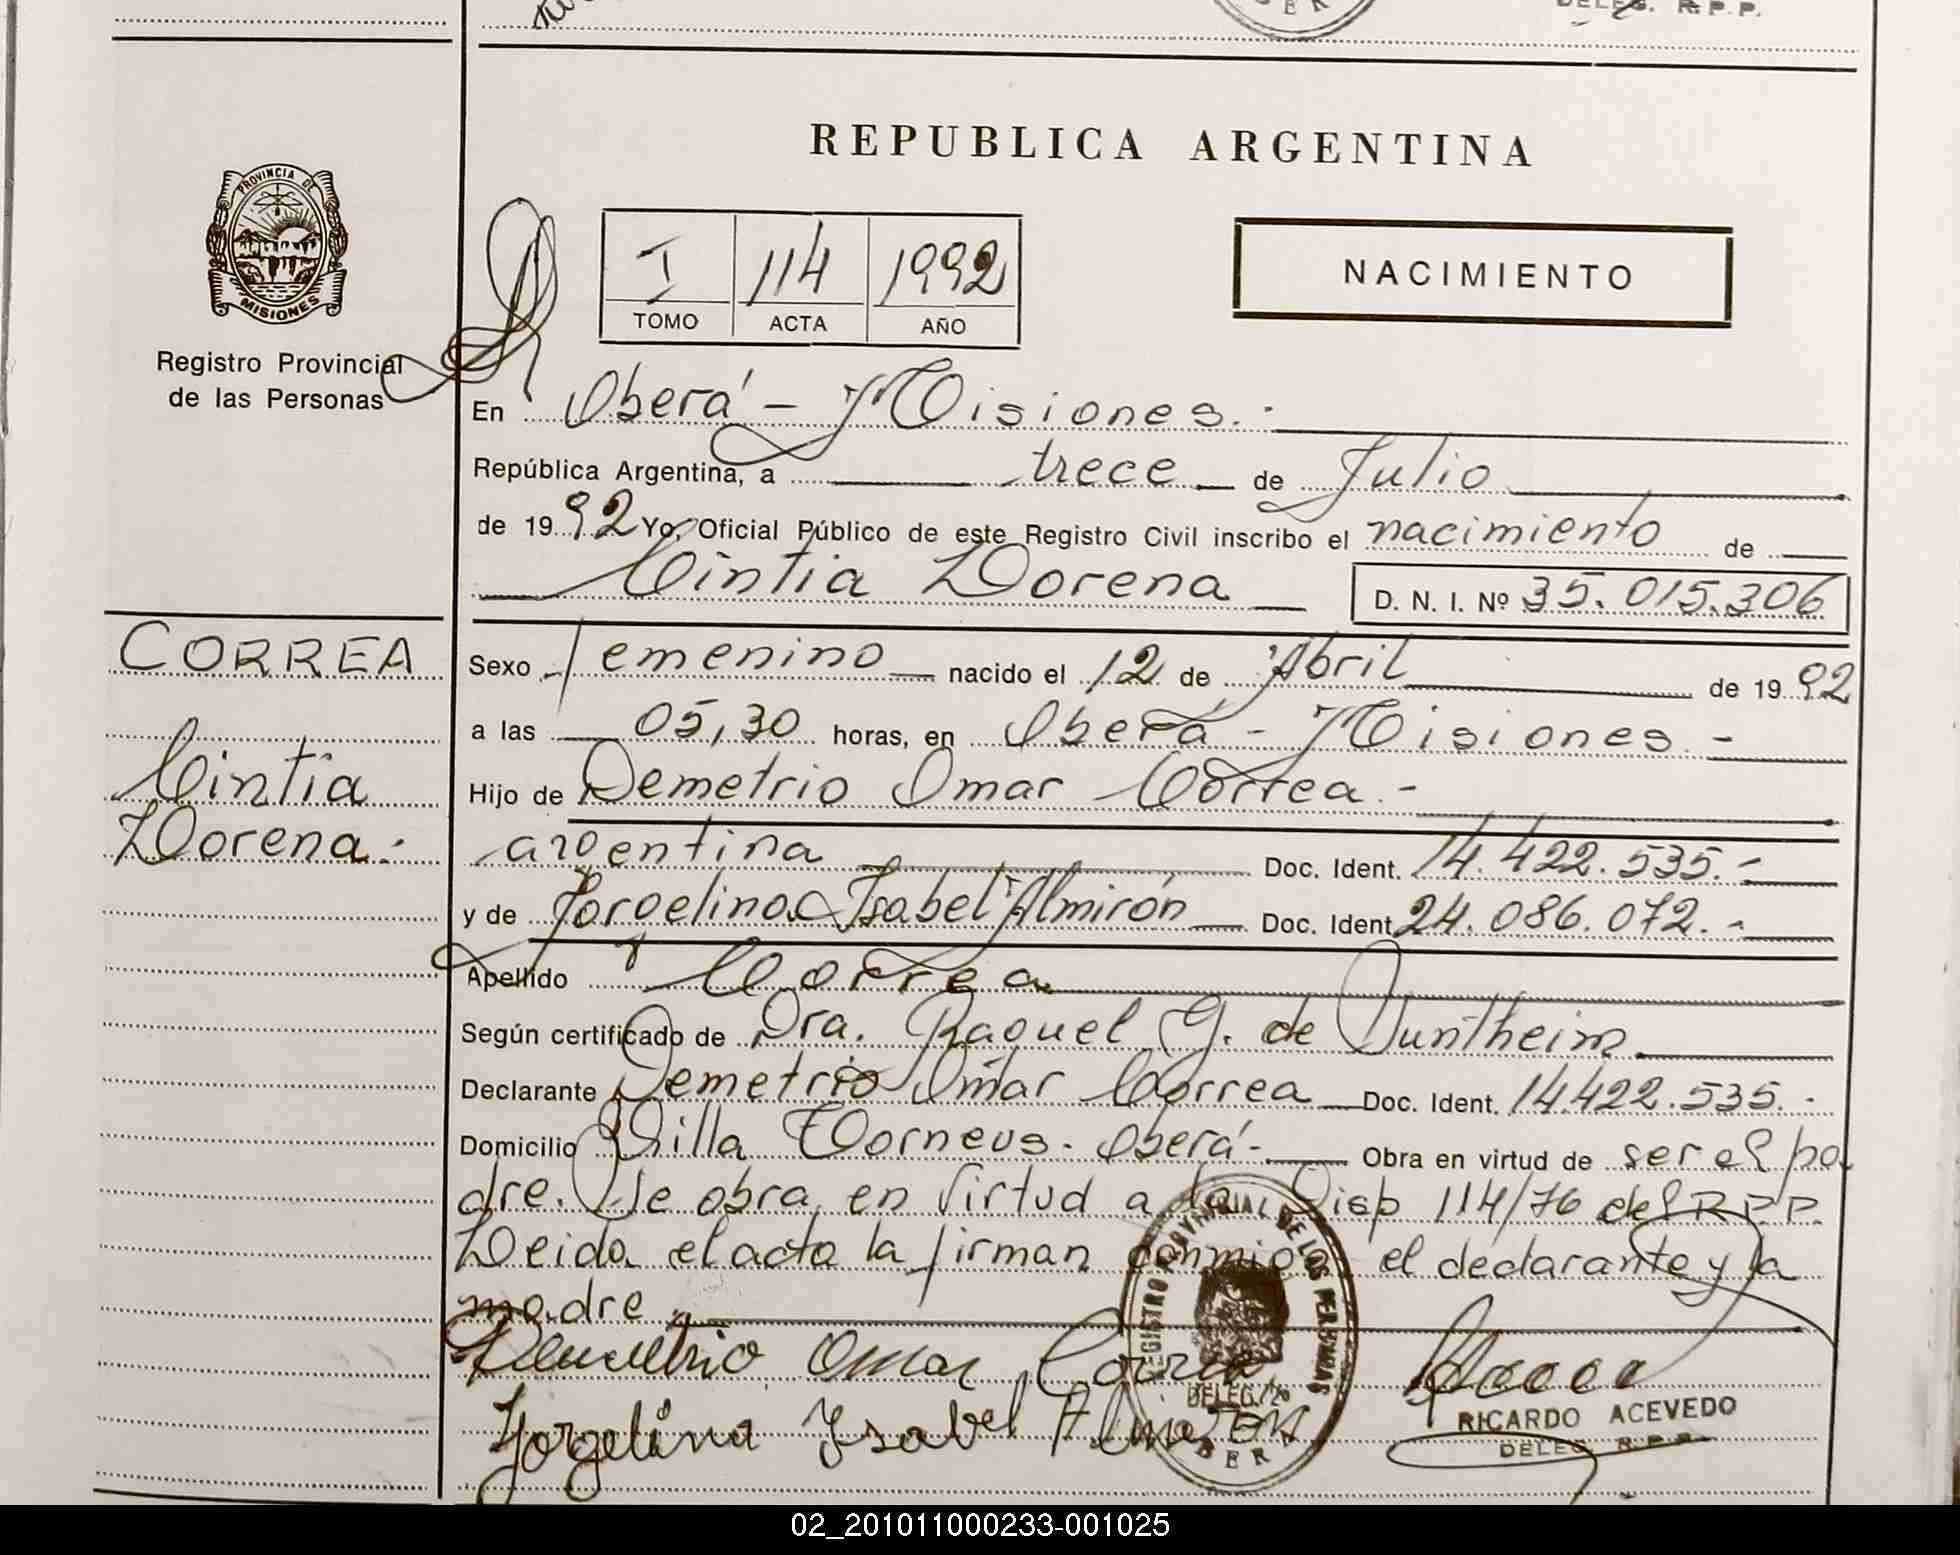 DELEG. R.P.P.
REPUBLICA ARGENTINA
PROVINCIA DE
MISIONES
Registro Provincial
de las Personas
I 114 1992
TOMO ACTA AÑO
NACIMIENTO
En Oberá - Misiones.-
República Argentina, a trece de Julio
de 1992 Yo, Oficial Público de este Registro Civil inscribo el nacimiento de
Cintia Lorena D. N. I. Nº 35.015.306
CORREA
Cintia
Lorena.-
Sexo femenino nacido el 12 de Abril de 1992
a las 05,30 horas, en Oberá - Misiones -
Hijo de Demetrio Omar Correa.-
argentina Doc. Ident. 14.422.535.-
y de Jorgelina Isabel Almirón Doc. Ident. 24.086.072.-
Apellido Correa
Según certificado de Dra. Raquel G. de
Declarante Demetrio Omar Correa Doc. Ident. 14.422.535.-
Domicilio Villa Torneus. Oberá- Obra en virtud de ser el pa
dre. Se obra en virtud a la Disp 114/76 del R.P.P.
Leida el acta la firman conmigo el declarante y la
madre
Demetrio Omar Correa
Jorgelina Isabel Almiron
REGISTRO PROVINCIAL DE LAS PERSONAS
DELEG.
RICARDO ACEVEDO
DELEG. R.P.P.
02_201011000233-001025